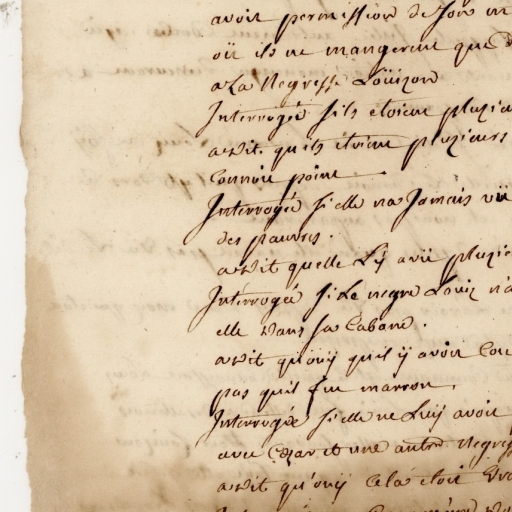 avoit permission de son m
où ils ne mangerent que d
a La Negresse Loüizon
Interrogée s'ils etoient pluzie
a dit qu'ils étoient pluzieurs
Connoit point.
Interrogée si elle na Jamais vü
des pauvres.
a dit quelle Lÿ avü pluzie
Interrogée si Le negre Louiz n'a
elle dans sa Cabane.
a dit qu'ouÿ qu'il ÿ avoit Cou
pas quil fut marron.
Interrogée si elle ne Luÿ avoit
avec Cezar et une autre Negres
a dit qu'ouÿ Cela etoit Vra